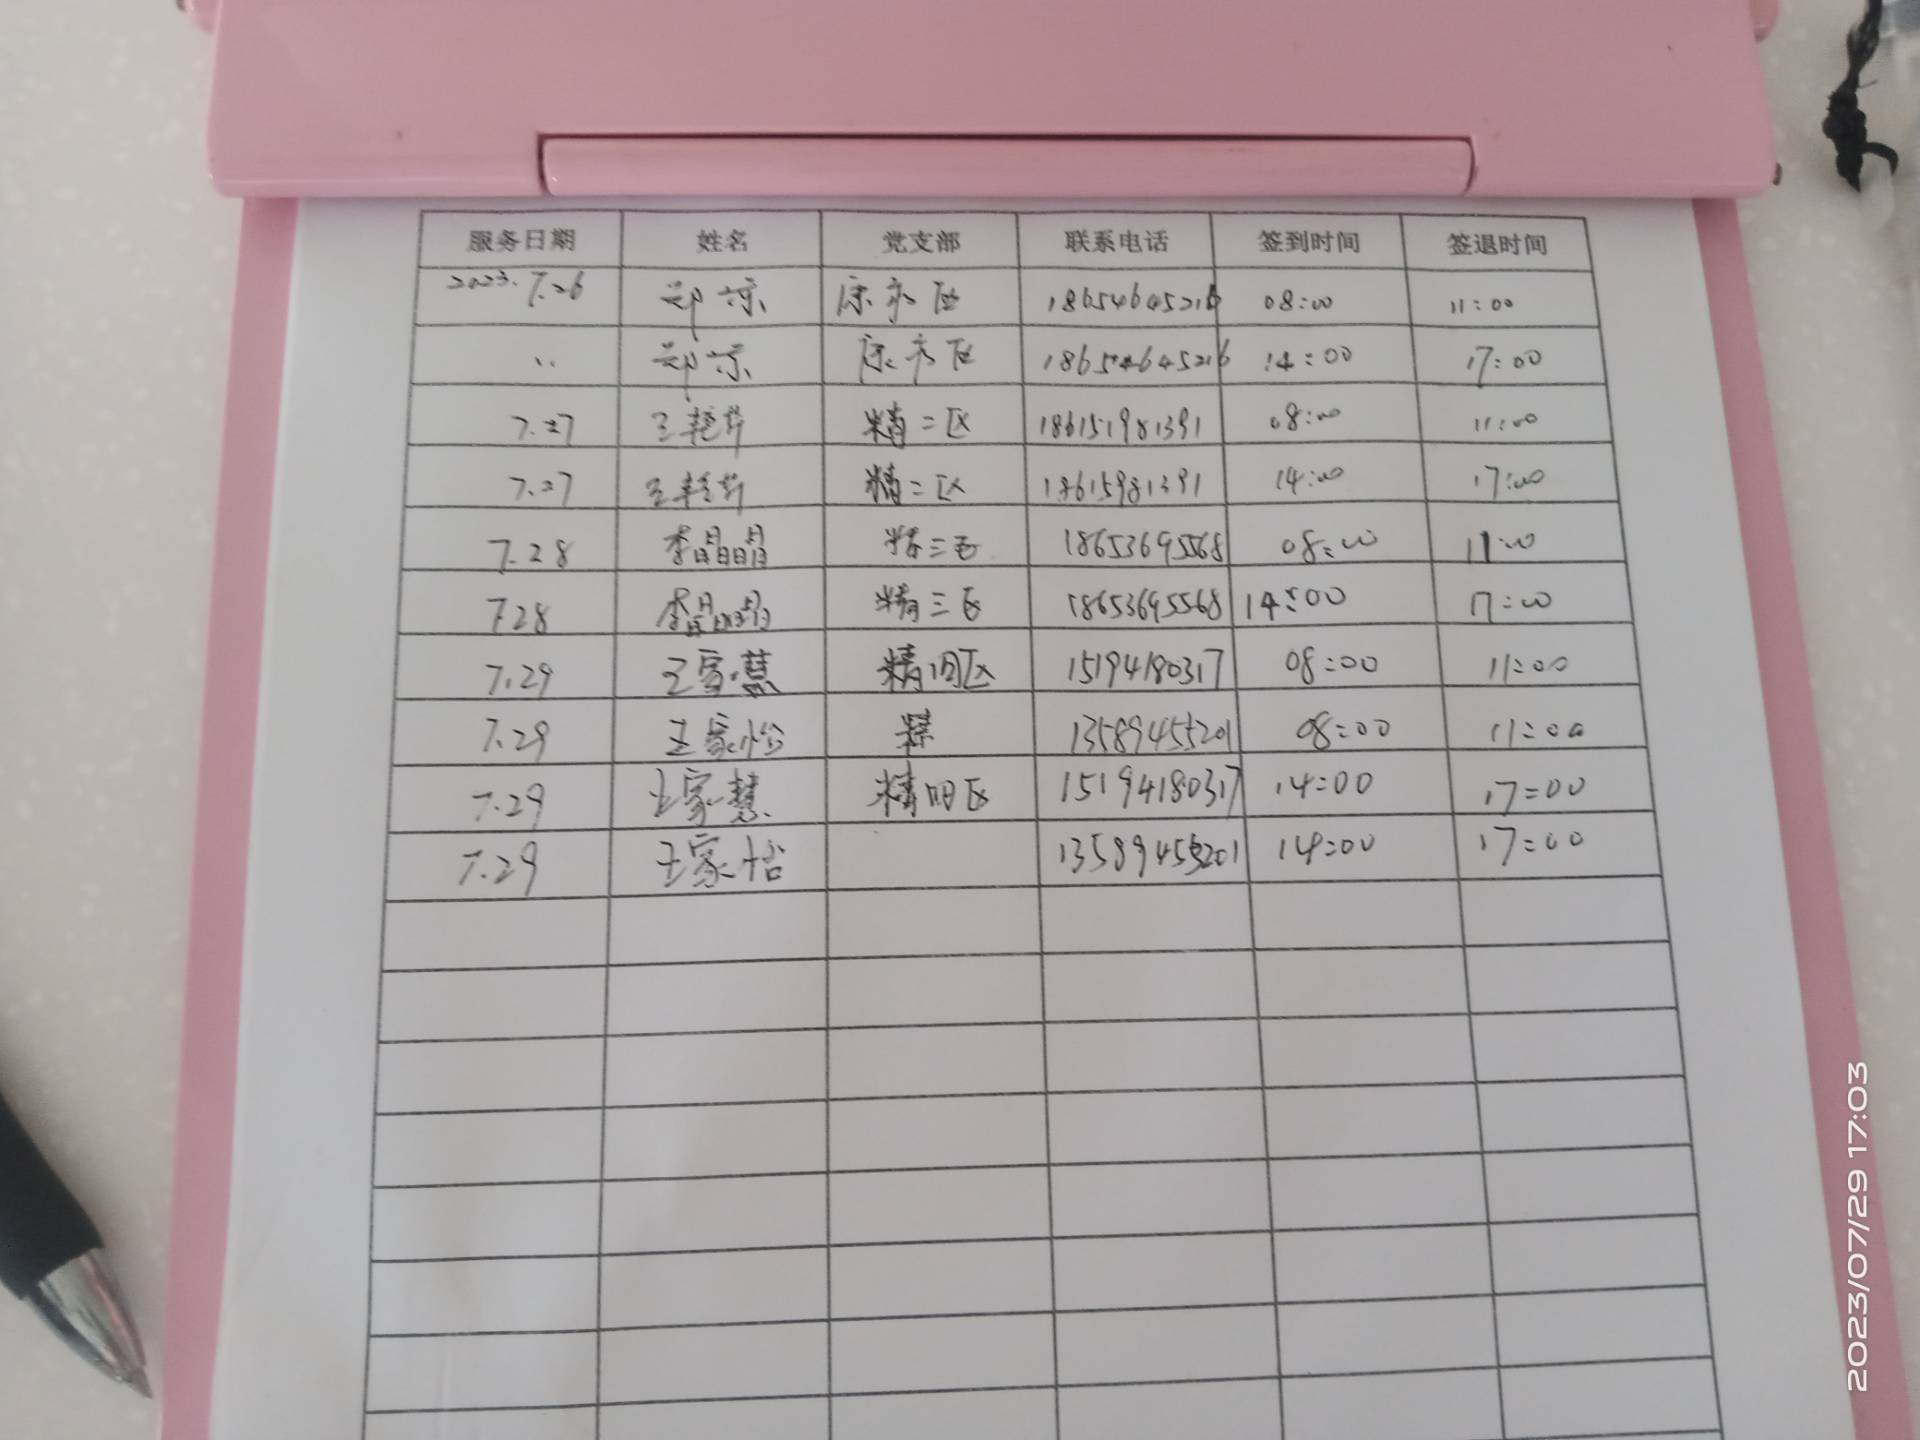 服务日期 姓名 党支部 联系电话 签到时间 签退时间
2023.7.26 郑京 康 18654645216 08:00 11:00
郑京 康 18654645216 14:00 17:00
7.27 王艳芹 精二区 186151981391 08:00 11:00
7.27 王艳芹 精二区 18615981391 14:00 17:00
7.28 李晶晶 精三区 18653695568 08:00 11:00
7.28 李晶晶 精三区 18653695568 14:00 17:00
7.29 王家慧 精四区 15194180317 08:00 11:00
7.29 王家怡 精 13589455201 08:00 11:00
7.29 王家慧 精四区 15194180317 14:00 17:00
7.29 王家怡 13589455201 14:00 17:00
2023/07/29 17:03